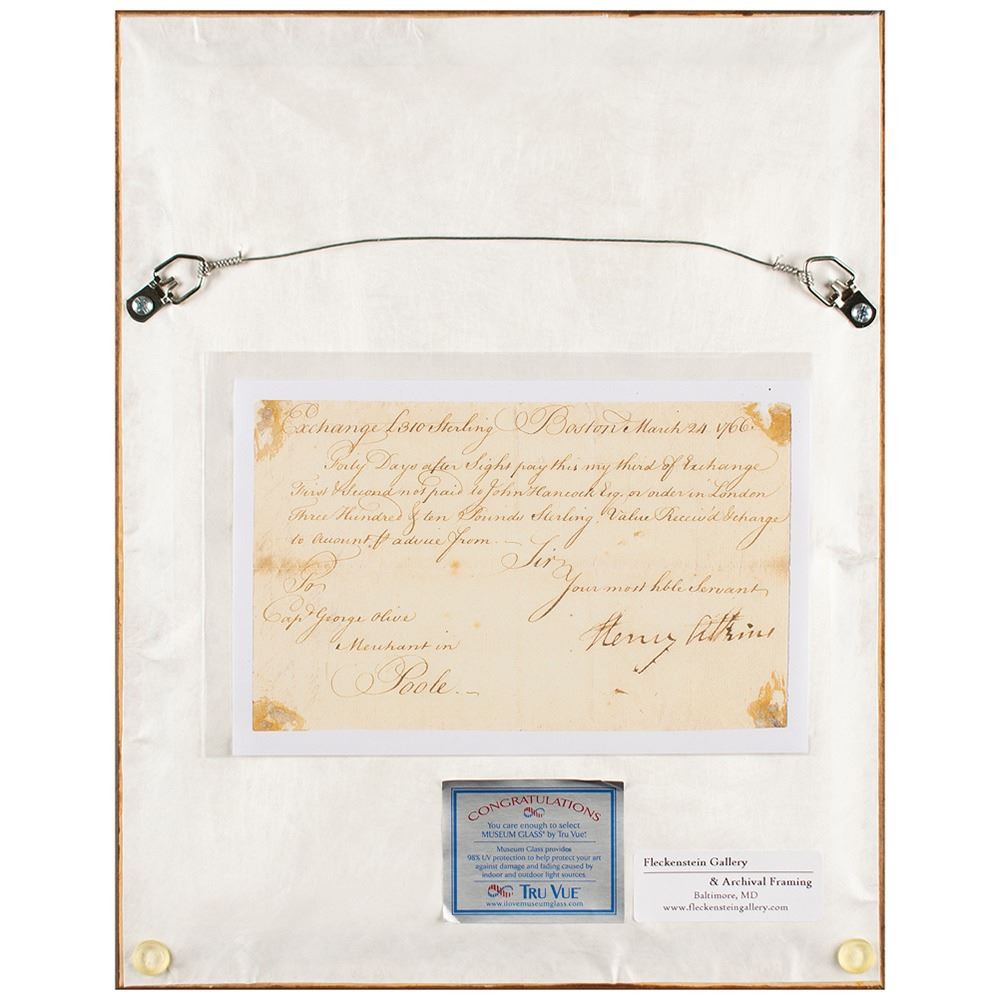 Exchange £310 Sterling Boston March 24 1766.
Forty Days after Sight pay this my third of Exchange
First & Second not paid to John Hancock Esq. or order in London
Three Hundred & ten Pounds Sterling Value Receiv'd & charge
to Account, as advice from.—
Sir
Your most hble Servant
To
Capt George Olive
Merchant in
Poole.—
Henry Atkins
CONGRATULATIONS
You care enough to select
MUSEUM GLASS® by Tru Vue!
Museum Glass provides
98% UV protection to help protect your art
against damage and fading caused by
indoor and outdoor light sources.
TRU VUE®
www.ilovemuseumglass.com
Fleckenstein Gallery
& Archival Framing
Baltimore, MD
www.fleckensteingallery.com